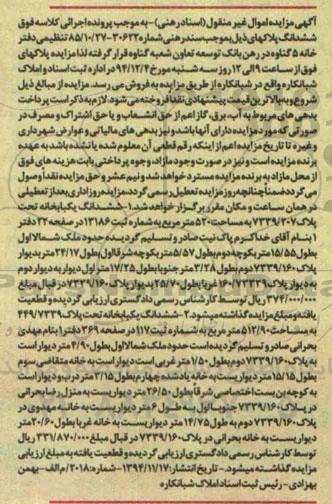 آگهی مزایده اموال غیر منقول (اسناد رهنی) - به موجب پرونده اجرائی کلاسه فوق
ششدانگ پلاکهای ذیل بموجب سند رهنی شماره ۳۰۶۲۲-۸۵/۱۰/۲۷ تنظیمی دفتر
خانه ۵ گناوه در رهن بانک توسعه تعاون شعبه گناوه قرار گرفته لذا مزایده پلاکهای
فوق از ساعت ۹ الی ۱۲ روز سه شنبه مورخ ۹۴/۱۲/۴ در اداره ثبت اسناد و املاک
شبانکاره واقع در شبانکاره از طریق مزایده به فروش می رسد. مزایده از مبالغ ذیل
شروع و به بالاترین قیمت پیشنهادی نقدا فروخته می شود. لازم به ذکر است پرداخت
بدهی های مربوط به آب، برق، گاز اعم از حق انشعاب و یا حق اشتراک و مصرف در
صورتی که مورد مزایده دارای آنها باشد و نیز بدهی های مالیاتی و عوارض شهرداری
و غیره تا تاریخ مزایده اعم از اینکه رقم قطعی آن معلوم شده یا نشده باشد به عهده
برنده مزایده است و نیز در صورت وجود مازاد، وجوه پرداختی بابت هزینه های فوق
از محل مازاد به برنده مزایده مسترد خواهد شد و نیم عشر و حق مزایده نقدا وصول
می گردد ضمنا چنانچه روز مزایده تعطیل رسمی گردد مزایده روز اداری بعد از تعطیلی
در همان ساعت و مکان مقرر برگزار خواهد شد. ۱- ششدانگ یکبابخانه تحت
پلاک ۷۳۳۹/۳۰۷ به مساحت ۵۲۰ متر مربع به شماره ثبت ۱۳۱۸۶ در صفحه ۲۲ دفتر
۱ بنام آقای خداکرم پاک نیت صادر و تسلیم گردیده حدود ملک شمالا اول
بطول ۱۵/۵۵ متر بکوچه دوم بطول ۵/۵۷ متر بکوچه شرقا ول بطول ۲۴/۱۷ متر بدیوار
پلاک ۷۳۳۹/۱۶۰ دوم بطول ۳/۲۸ متر جنوبا بطول ۱۷/۲۵ متر اول دیوار به دیوار دوم
به دیوار پلاک ۷۳۳۹/۱۶۰ غربا بطول ۲۵/۷۰ بدیوار پلاک ۷۳۳۹/۱۶۰ در قبال مبلغ
۳۷۴/۰۰۰/۰۰۰ ریال توسط کارشناس رسمی دادگستری ارزیابی گردیده و قطعیت
یافته و مبلغ مزایده گذاشته میشود. ۲- ششدانگ یکبابخانه تحت پلاک ۷۳۳۹/۴۴۹
به مساحت ۵۱۲/۹۰ متر مربع به شماره ثبت ۱۱۷ در صفحه ۳۶۹ دفتر ۱ بنام مهدی
بحرانی صادر و تسلیم گردیده است حدود ملک شمالا اول بطول ۴/۹۰ متر دیواریست
به پلاک ۷۳۳۹/۱۶۰ دوم بطول ۱/۵۰ متر غربی است دیواریست به خانه متقاضی سوم
بطول ۱۵/۱۵ متر دیواریست به خانه یاد شده چهارم بطول ۳/۱۵ متر درب و دیوار است
به کوچه بن بست اختصاصی شرقا بطول ۲۶/۵۰ متر دیواریست به منزل رضا بحرانی
در پلاک ۷۳۳۹/۱۶۰ جنوبا اول به طول ۶ متر دیواریست به خانه مهدوی در
پلاک ۷۳۳۹/۱۶۰ دوم به طول ۱۴/۷۵ متر دیواریست به خانه غربا بطول ۲۰/۶۰ متر
دیواریست به خانه بحرانی در پلاک ۷۳۳۹/۱۶۰ در قبال مبلغ ۳۳۱/۸۷۰/۰۰۰ ریال
توسط کارشناس رسمی دادگستری ارزیابی گردیده و قطعیت یافته به مبلغ ارزیابی به
مزایده گذاشته میشود. - تاریخ انتشار: ۱۳۹۴/۱۱/۱۷ - شماره: ۲۰۱۸/م الف - بهمن
بهزادی - رئیس ثبت اسناد املاک شبانکاره